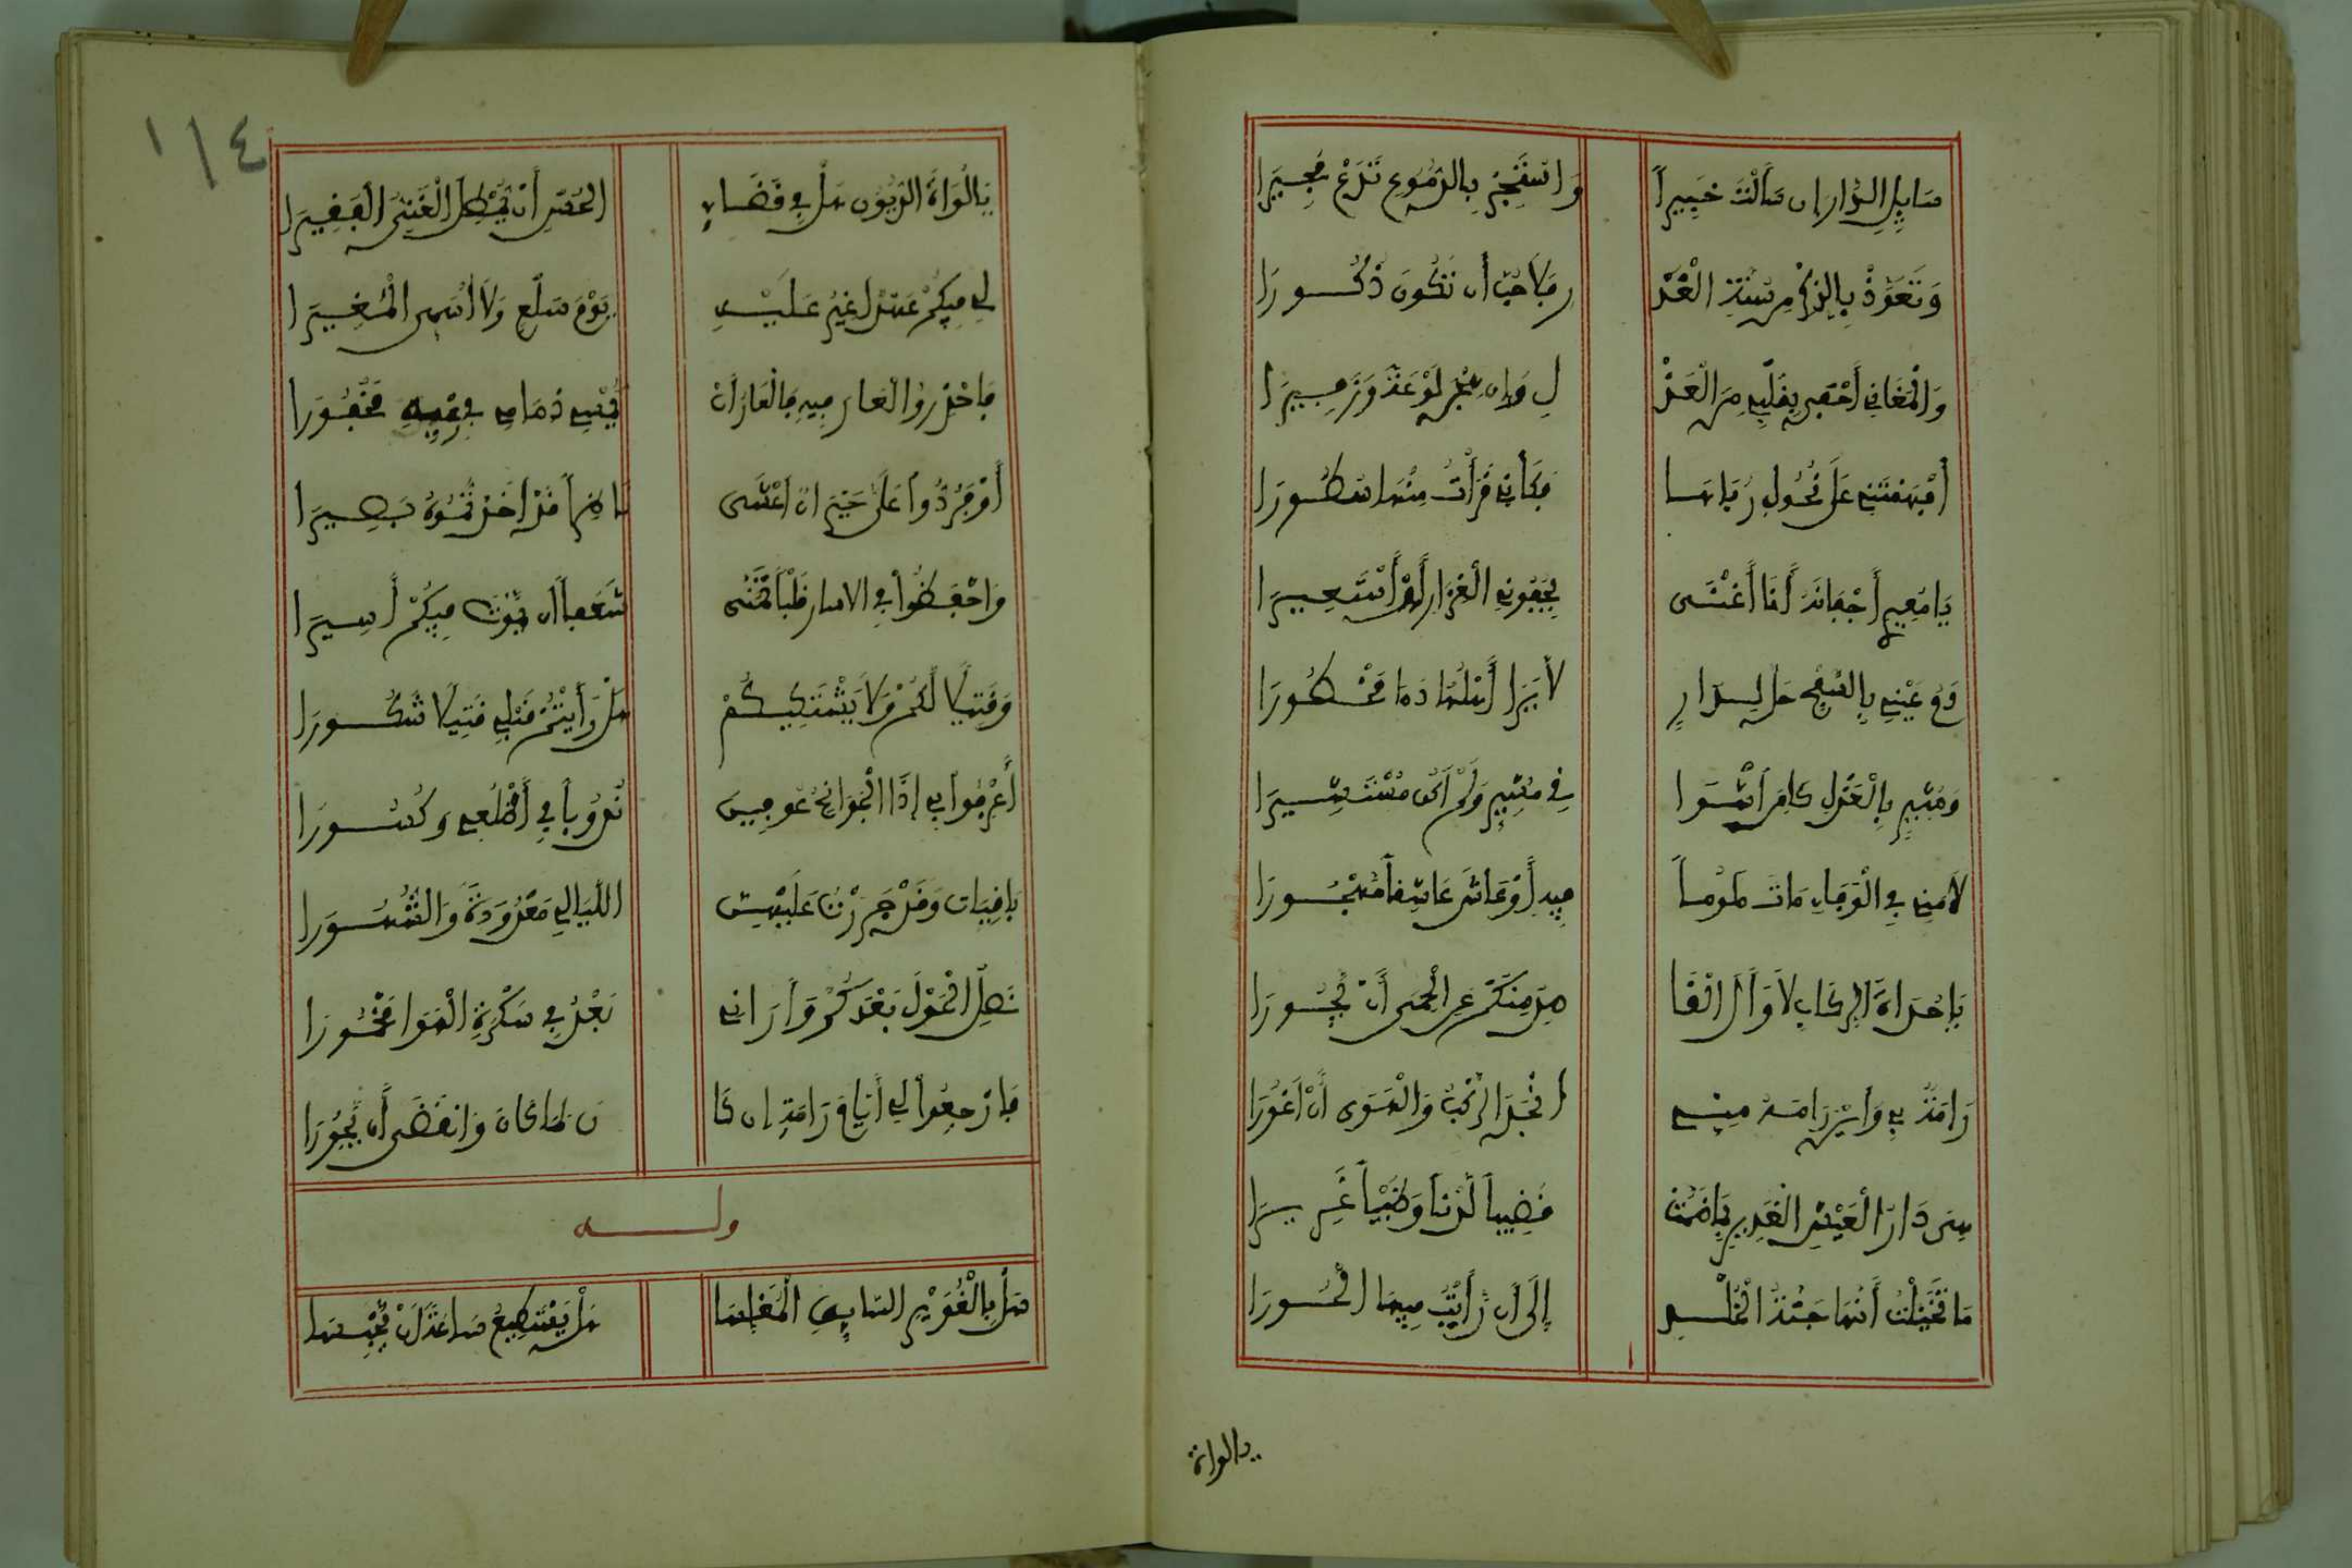 سَايِلِ الدَّارَ إِن سَأَلْتَ خَبِيراً وَاسْتَجِرْ بِالدُّمُوعِ تَدْعُ مُجِيرَا
وَتَعَوَّذْ بِالذِّكْرِ مِن سُنَّةِ الْغَدْ رِ فَلَا حُبَّ أَن تَكُونَ ذَكُورَا
وَالْمَغَانِي أَحْفَى بِقَلْبِي مِنَ الْعَذْ لِ وَإِن هِجْنَ لَوْعَةً وَزَفِيرَا
أَفْهَمَتْنِي عَلَى نُحُولِ رُبَاهَا فَكَأَنِّي قَرَأْتُ مِنْهَا سُطُورَا
يَا مُعِيرِي أَجْفَانَهُ أَنَا أَغْنَى بِجُفُونِي الْغِزَارِ أَنْ أَسْتَعِيرَا
دَعْ عَيْنِي بِالسَّفْحِ حَلَّ لِدَارٍ لَا يَرَا أَهْلُهَا دَماً مَحْظُورَا
وَمُشِيرٍ بِالْعَذْلِ كَامِن أَشْوَا فِي مُشِيرٍ وَلَمْ أَكُن مُسْتَشِيرَا
لَامَنِي فِي الْوَفَاءِ مَاتَ مَلُوماً فِيهِ أَوْ عَاشَ عَاشِقاً مَهْجُورَا
يَا حُدَاةَ الرِّكَابِ لَا وَأَلَ الْحَا دِي مِنْكُمْ عَنِ الْحِمَى أَنْ يَجُورَا
رَامَةٌ بِي وَأَيْنَ رَامَةُ مِنِّي أَنْجَدَ الرَّكْبُ وَالْهَوَى أَنْ أَغُورَا
هِيَ دَارُ الْعَيْشِ الْغَرِيرِ بِمَا ضَمَّتْ قَضِيباً لَدْناً وَظَبْياً غَرِيرَا
مَا تَخَيَّلْتُ أَنَّهَا جَنَّةُ الْخُلْدِ إِلَى أَن رَأَيْتُ فِيهَا الْحُورَا
يالواة
١١٤
يَا لُوَاةَ الدُّيُونِ هَلْ فِي قَضَاءِ الْحُسْنِ أَنْ يَمْطُلَ الْغَنِيُّ الْفَقِيرَا
لِي فِيكُمْ عَهْدٌ أُغِيرَ عَلَيْهِ يَوْمَ سَلْعٍ وَلَا أُسَمِّي الْمُغِيرَا
فَاحْذَرُوا الْعَارَ فِيهِ فَالْعَارُ أَنْ يُمْسِي ذِمَامِي فِي حُبِّهِ مَخْفُورَا
أَوْ فَرُدُّوا عَلَيَّ حَيْرَانَ أَعْشَى نَاظِراً قَدْ أَخَذْتُمُوهُ بَصِيرَا
وَاحْفَظُوا فِي الْإِسَارِ قَلْباً تَمَنَّى شَغَفاً أَن يَمُوتَ فِيكُمْ أَسِيرَا
وَقَتِيلاً لَكُمْ وَلَا يَشْتَكِيكُمْ هَلْ رَأَيْتُمْ قَبْلِي قَتِيلاً شَكُورَا
اعْرِفُوا لِي إِذَا الْجَوَانِحُ عُوفِينَ نُدُوباً فِي أَضْلُعِي وَكُسُورَا
بَاقِيَاتٍ وَقَدْ جَرَرْنَ عَلَيْهِنَّ اللَّيَالِي مَعْدُودَةً وَالشُّهُورَا
نَصَلَ الْحَوْلُ بَعْدَكُمْ وَأَرَانِي بَعْدُ فِي سَكْرَةِ الْهَوَا مَخْمُورَا
فَارْجِعُوا لِي أَيَّامَ رَامَةَ إِن كَا نَ كَمَا كَانَ وَانْقَضَى أَن يَحُورَا
ولــــه
سَلْ بِالْغُوَيْرِ السَّايِقَ الْمُغَلِّسَا هَلْ يَسْتَطِيعُ سَاعَةً أَنْ يَحْبِسَا